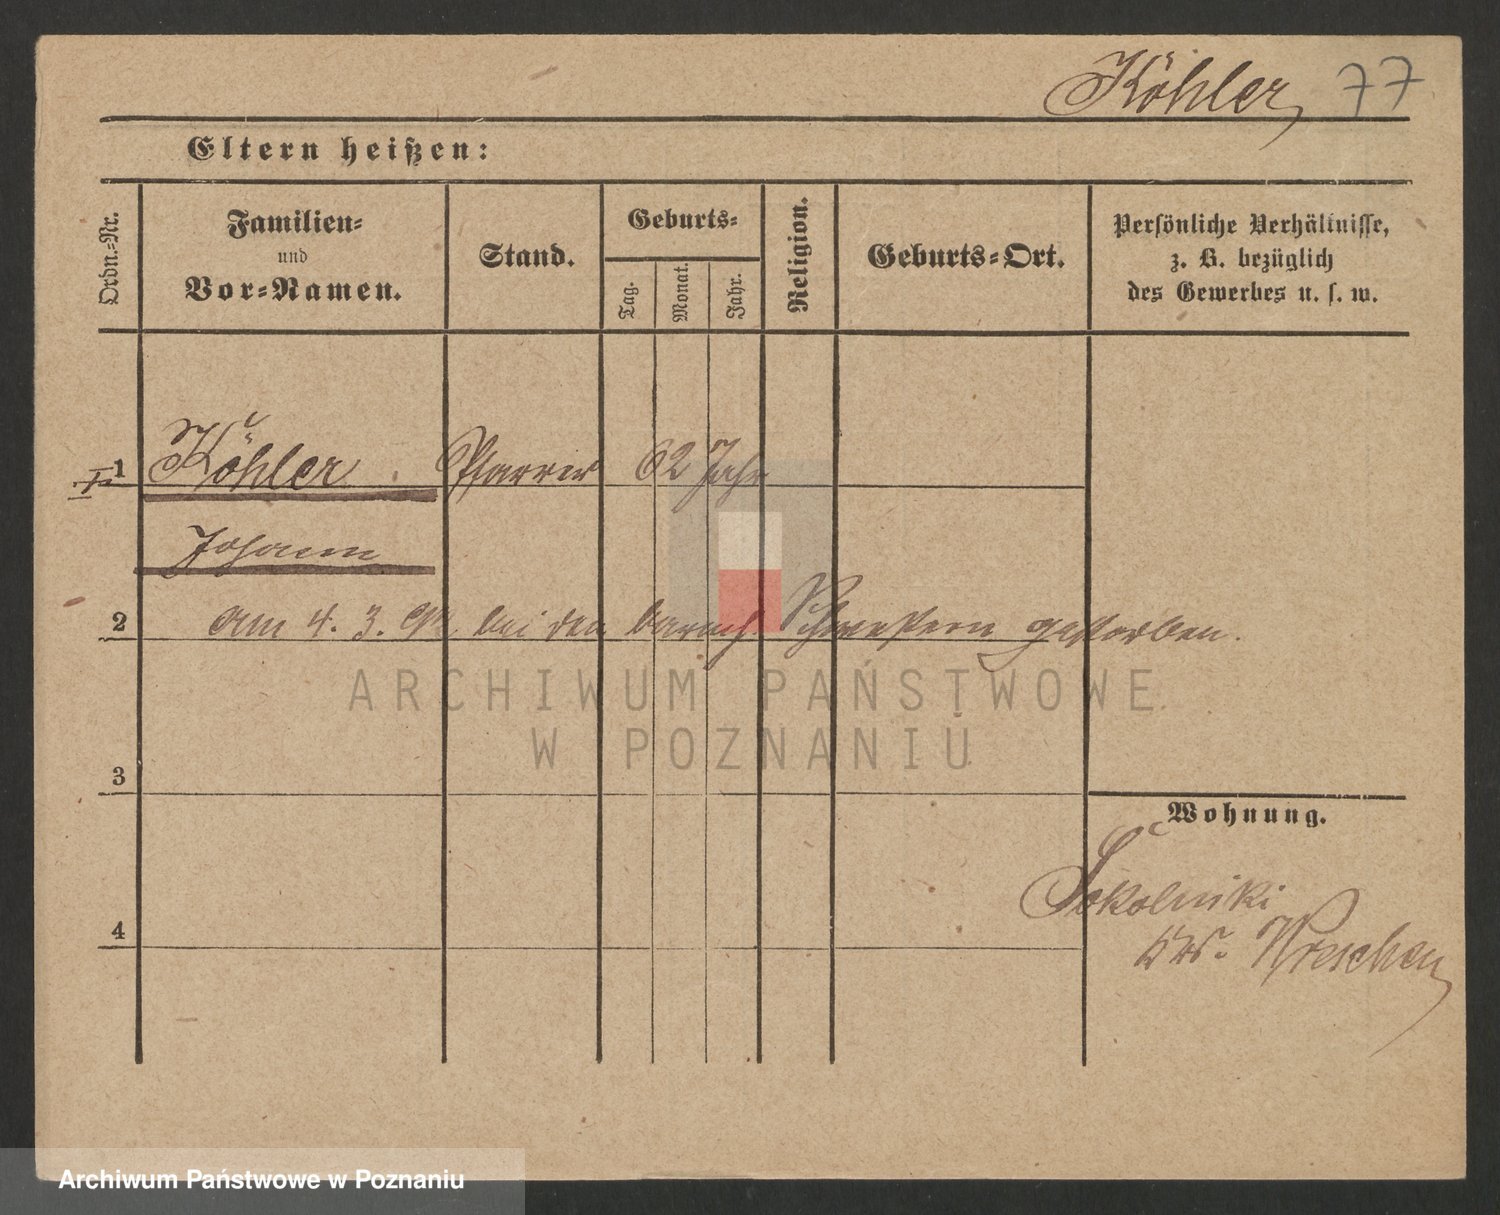 Köhler 77
Eltern heißen:
Ordn.-Nr.
Familien-
und
Vor-Namen.
Stand.
Geburts-
Tag.
Monat.
Jahr.
Religion.
Geburts-Ort.
Persönliche Verhältnisse,
z. B. bezüglich
des Gewerbes u. s. w.
1 Köhler Pfarrer 62 Jahr
Johann
2 am 4. 3. bei den barmh. Schwestern gestorben.
ARCHIWUM PAŃSTWOWE
W POZNANIU
3
Wohnung.
Sokolniki
4
Krs. Wreschen
Archiwum Państwowe w Poznaniu